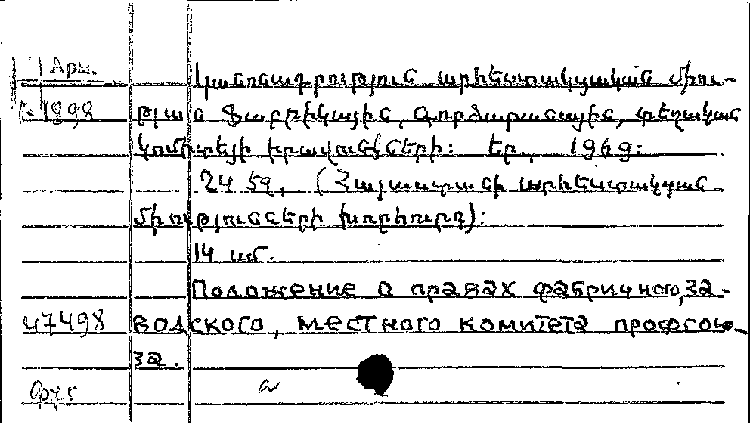 Арм.
Կանոնադրություն արհեստակցական միու-
1898 թյան Ֆաբրիկային, գործարանային, տեղական
կոմիտեյի իրավունքների: Եր., 1969:
24 էջ, (Հայաստանի արհեստակցական
միությունների խորհուրդ):
14 սմ.
Положение о правах фабричного, за-
47498 водского, местного комитета профсою-
за.